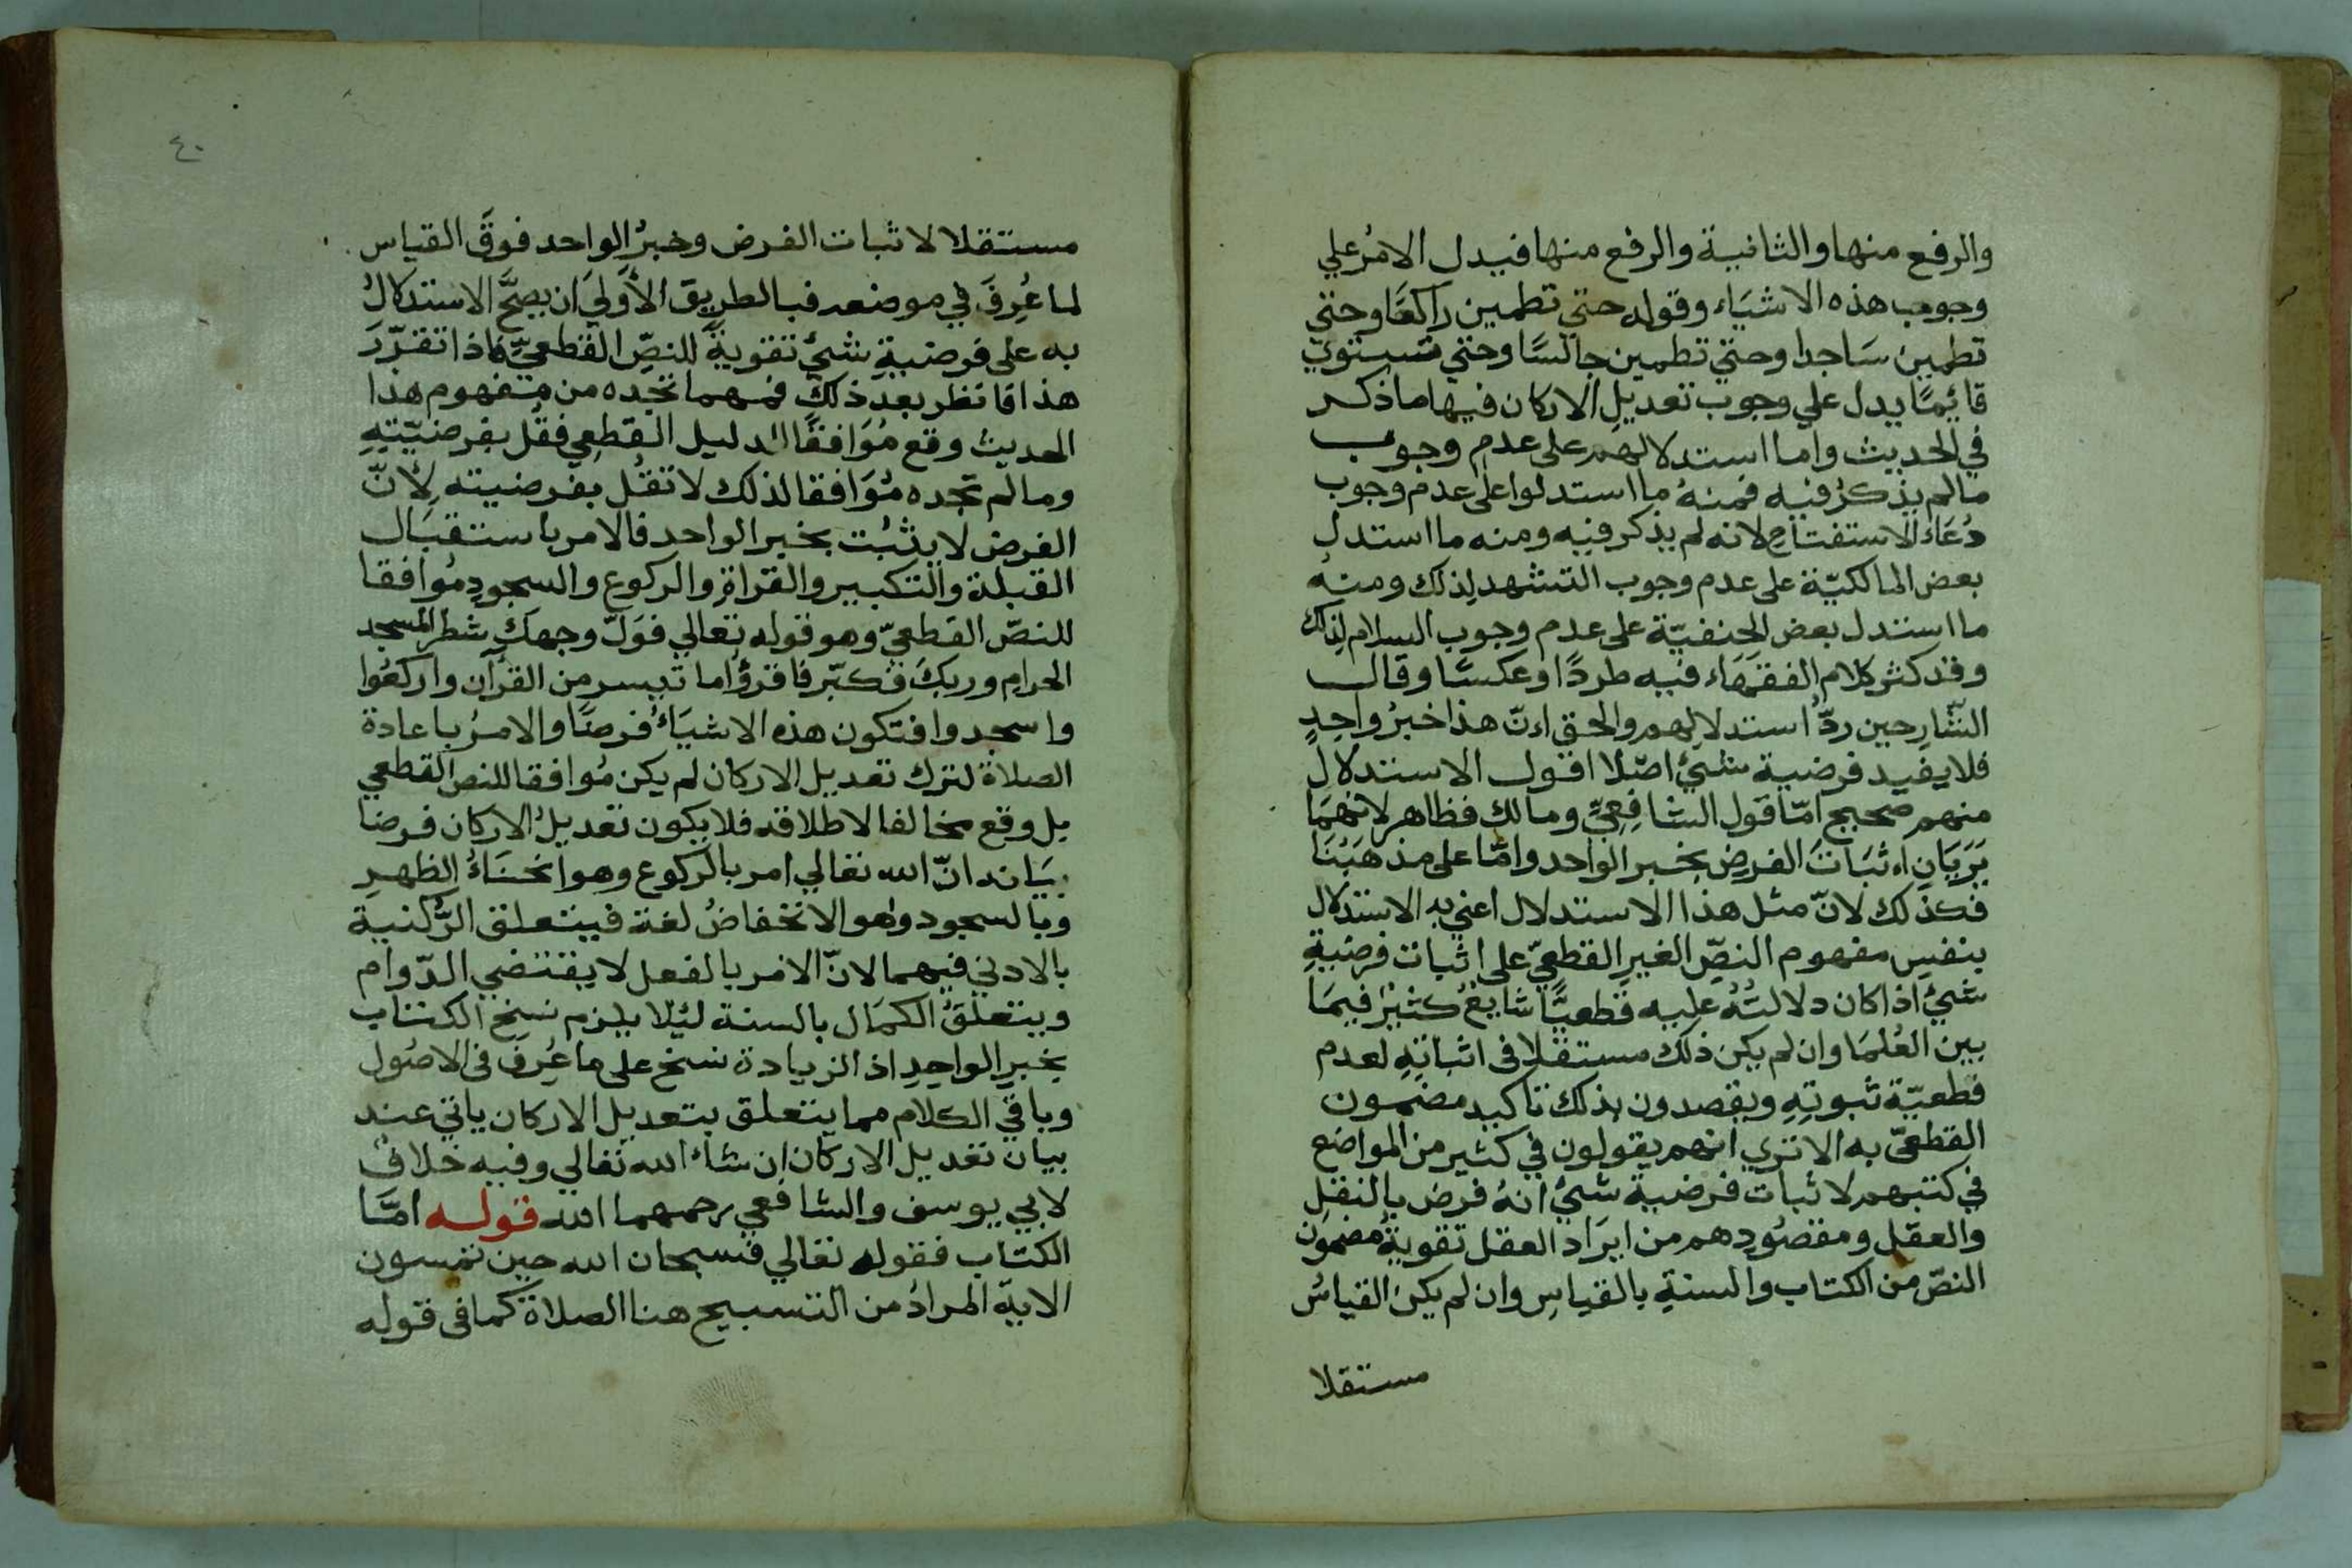 والرفع منها والثانية والرفع منها فيدل الامرُ علي
وجوب هذه الاشيَاء وقوله حتي تطمين راكعًا وحتي
تطمين سَاجدا وحتي تطمين جالسًا وحتي تستوي
قائِمًا يدل علي وجوب تعديلِ الاركان فيها ما ذكر
في الحديث واما استدلالهم على عدمِ وجوب
ما لم يذكرُ فيه فمنهُ ما استدلوا على عدم وجوب
دُعَاءِ الاستفتاحِ لانه لم يذكر فيه ومنه ما استدل
بعض المالكيّة على عدم وجوب التشهد لِذلك ومنهُ
ما استدل بعض الحنفيّة على عدم وجوب السلام لِذلك
وقد كثر كلام الفقهَاء فيه طردًا وعكسًا وقال
الشّارحين ردُّ استدلالِهم والحق اِنّ هذا خبرُ واحِدٍ
فلا يفيد فرضية شئٍ اصْلا اقول الاستدلالِ
منهم صحيح امّا قول الشافِعِيِّ ومالك فظاهر لانهمَا
يَرَيَانِ اِثبَاتَ الفرضِ بخبر الواحد وامّا على مذهَبْنَا
فكذلك لانّ مثل هذا الاستدلال اعني به الاستدلال
بنفسِ مفهوم النصِّ الغيرِ القطعيّ على اثبات فرضيةِ
شئٍ اذا كان دلالتُهُ عليه قطعيًّا شايعٌ كثيْرٌ فيمَا
بين العُلمَا وان لم يكن ذلك مستقلا فى اثباتِهِ لعدم
قطعيّة ثبوتِهِ ويقصدون بذلك تاكيد مضمون
القطعيّ به الا تري انهم يقولون في كثير من المواضع
في كتبهم لاثبات فرضية شئٍ انهُ فرض بالنقلِ
والعقل ومقصُودهم من ايرَاد العقل تقويةُ مضمون
النصّ من الكتاب والسنةِ بالقياسِ وان لم يكن القياسُ
مستقلا
٤٠
مستقلا لاثبات الفرض وخبرُ الواحد فوقَ القياس
لما عُرِفَ في موضعه فبالطريق الأَولَي ان يصحَّ الاستدلالُ
به على فرضيةِ شئٍ تقويةً للنصِّ القطعيِّ فاذا تقرّرَ
هذا فانظر بعد ذلك فمهما تجده من مفهوم هذا
الحديث وقع مُوَافقًا لدليل القطعِي فقُل بفرضيّتِهِ
وما لم تجده مُوَافقا لذلك لا تقُل بفرضيته لِأنّ
الفرض لا يثبُت بخبر الواحد فالامر باستقبَال
القبلة والتكبير والقراةِ والركوع والسجودِ مُوافقا
للنصّ القطعيّ وهو قوله تعالي فوَلّ وجهكَ شطر المسجد
الحرامِ وربكَ فكبّر فاقرؤُا ما تيسر من القرآن واركعُوا
واسجدوا فتكون هذه الاشيَاءُ فرضًا والامرُ باعادة
الصلاة لترك تعديل الاركان لم يكن مُوافقا للنص القطعي
بل وقع مخالفا لاطلاقه فلا يكون تعديلُ الاركان فرضا
بيَانه انّ الله تعالي امر بالركوع وهو انحنَاءُ الظهرِ
وبالسجود وهو الانخفاضُ لغة فيتعلق الرُّكنية
بالادني فيهما لانّ الامر بالفعل لا يقتضي الدّوام
ويتعلقُ الكمَال بالسنة لئِلا يلزم نسخ الكتاب
بخبرِ الواحِدِ اذ الزيادة نسخ على ما عُرِفَ فى الاصُول
وباقي الكلام مما يتعلق بتعديل الاركان ياتي عند
بيان تعديل الاركان ان شاء الله تعالي وفيه خلافُ
لابي يوسف والشافعي رحمهما الله قوله امَّا
الكتاب فقوله تعالي فسبحان الله حين تمسون
الايه المرادُ من التسبيح هنا الصلاة كما فى قوله